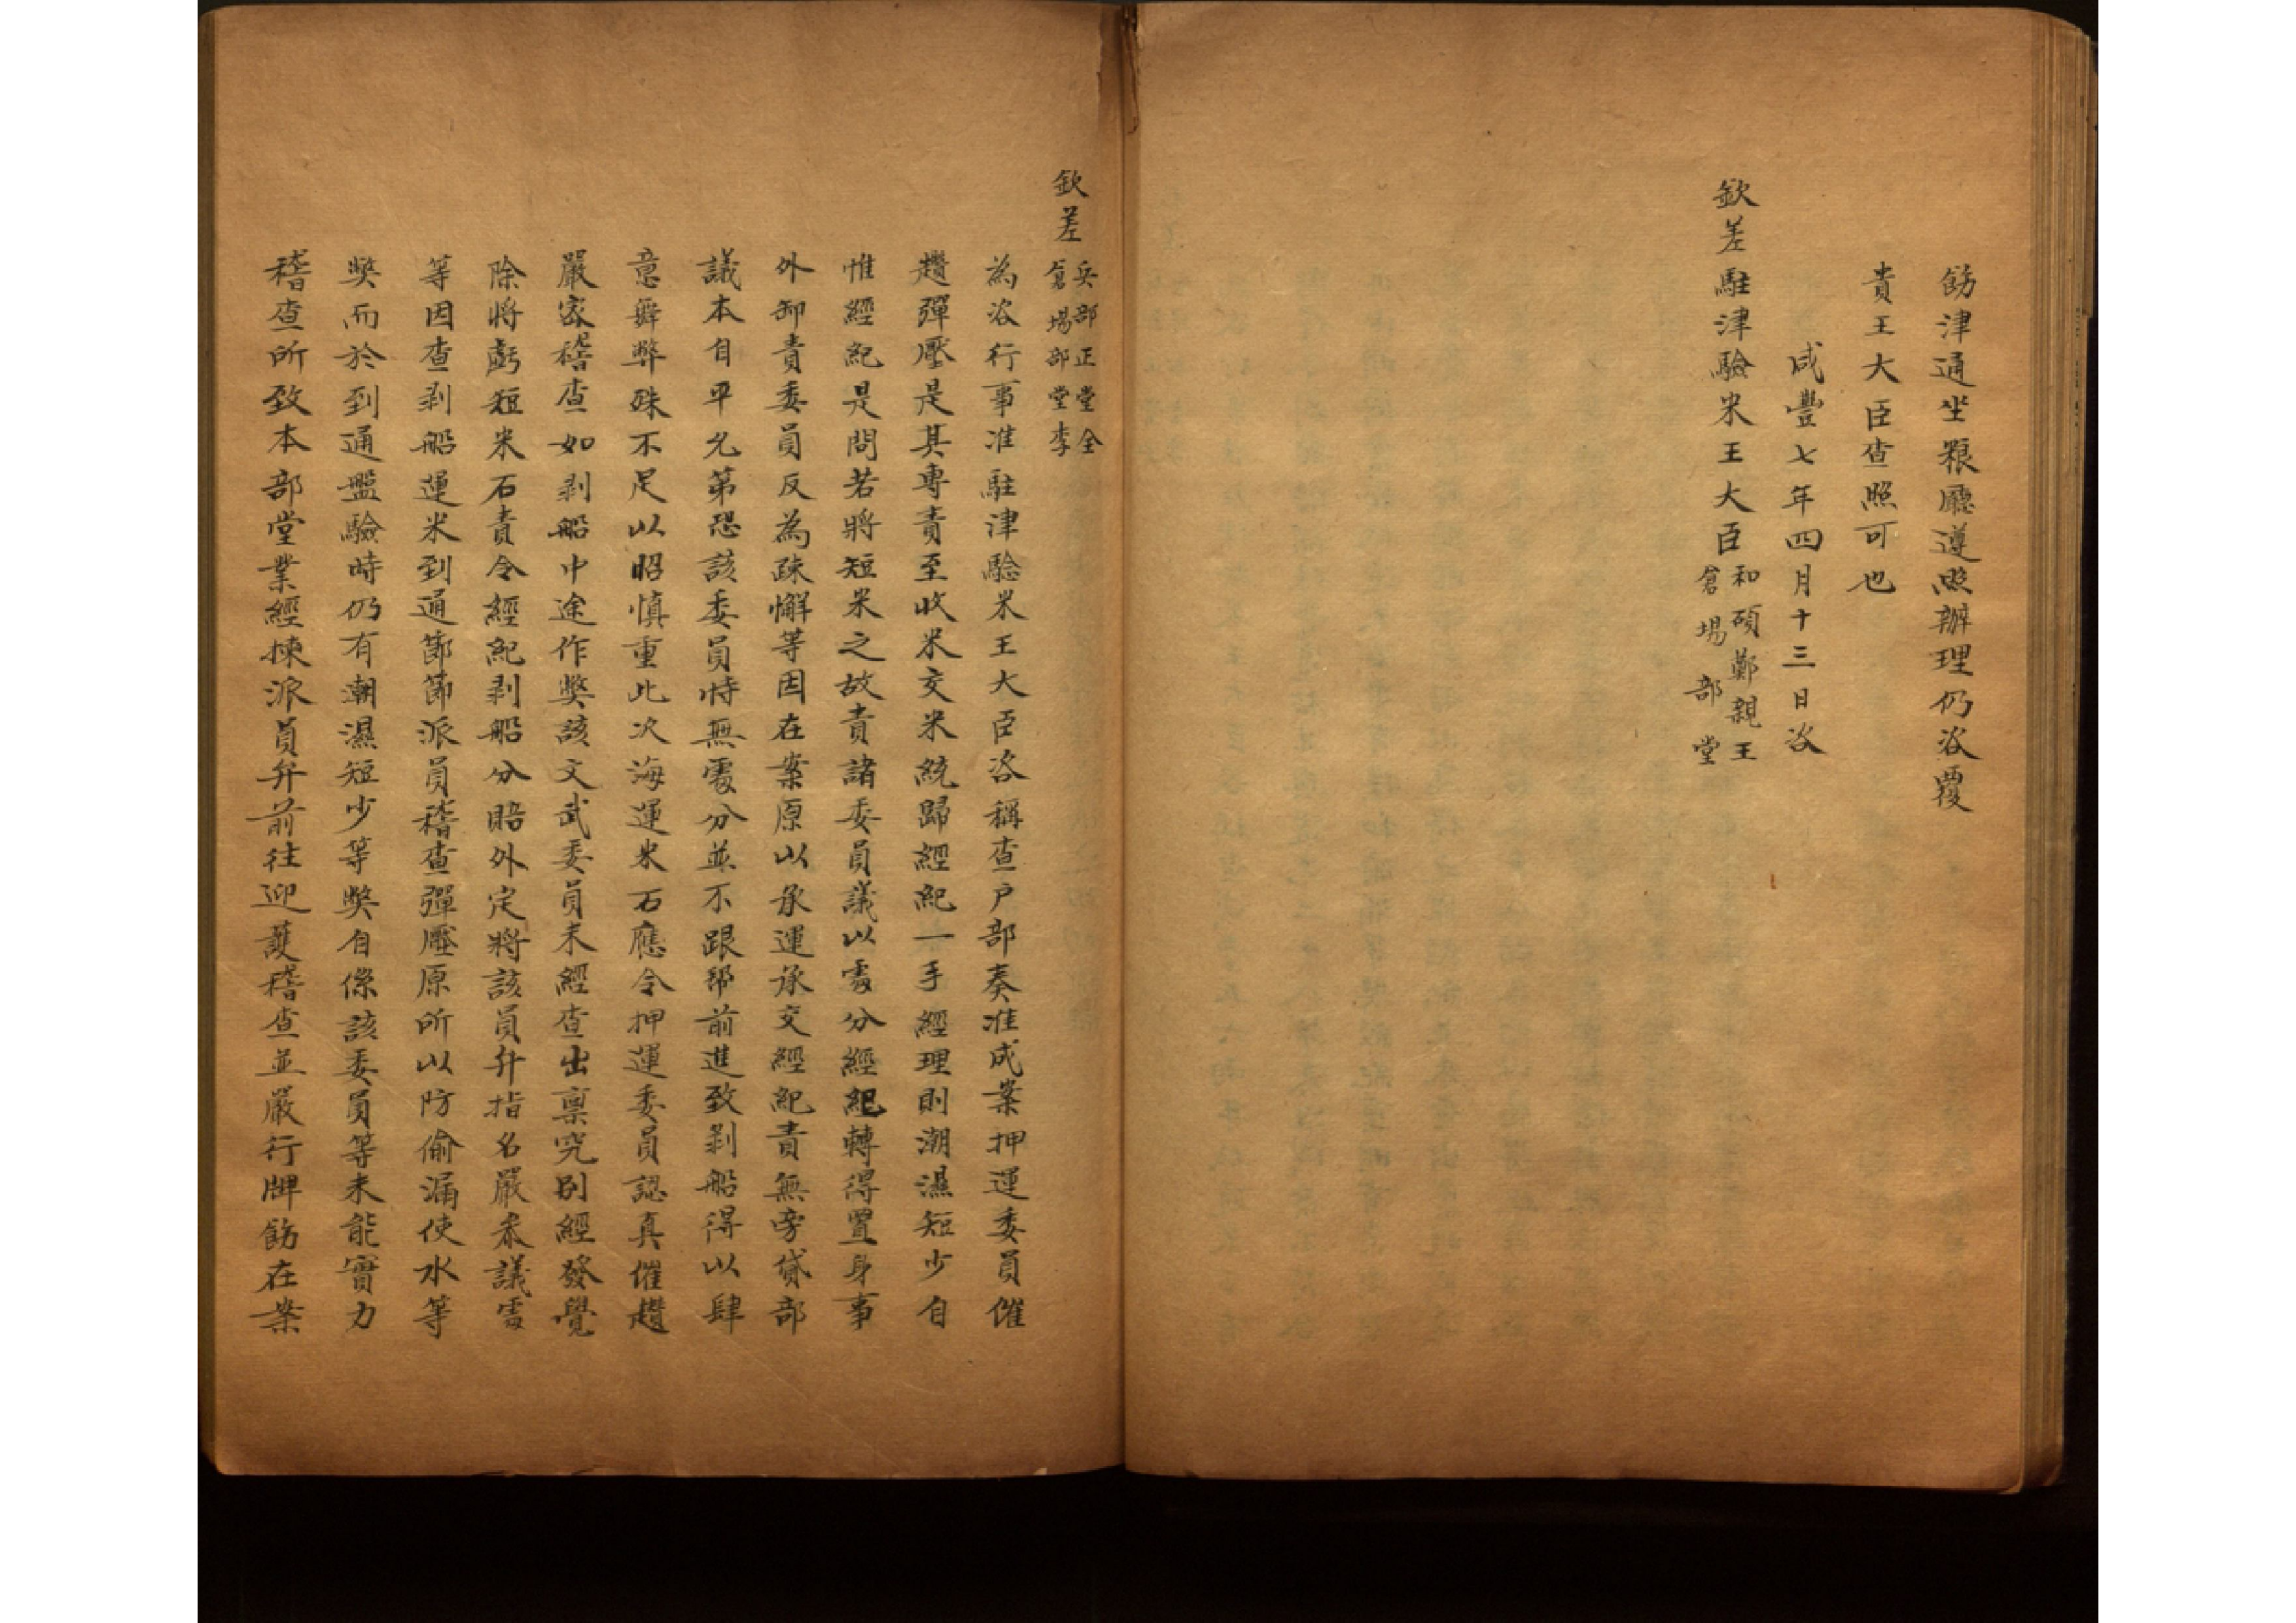 飭津通坐粮廳遵照辦理仍咨覆
貴王大臣查照可也
咸豐七年四月十三日咨
欽差駐津驗米王大臣和碩鄭親王
倉場部堂
欽差兵部正堂全
倉場部堂李
為咨行事准駐津驗米王大臣咨稱查户部奏准成案押運委員催
趲彈壓是其專責至收米交米統歸經紀一手經理則潮濕短少自
惟經紀是問若將短米之故責諸委員議以處分經紀轉得置身事
外卸責委員反為疎懈等因在案原以承運承交經紀責無旁貸部
議本自平允第恐該委員恃無處分並不跟帮前進致剥船得以肆
意舞弊殊不足以昭慎重此次海運米石應令押運委員認真催趲
嚴密稽查如剥船中途作獘該文武委員未經查出禀究别經發覺
除將虧短米石責令經紀剥船分賠外定將該員弁指名嚴叅議處
等因查剥船運米到通節節派員稽查彈壓原所以防偷漏使水等
獘而於到通盤驗時仍有潮濕短少等獘自係該委員等未能實力
稽查所致本部堂業經揀派員弁前往迎護稽查並嚴行牌飭在案